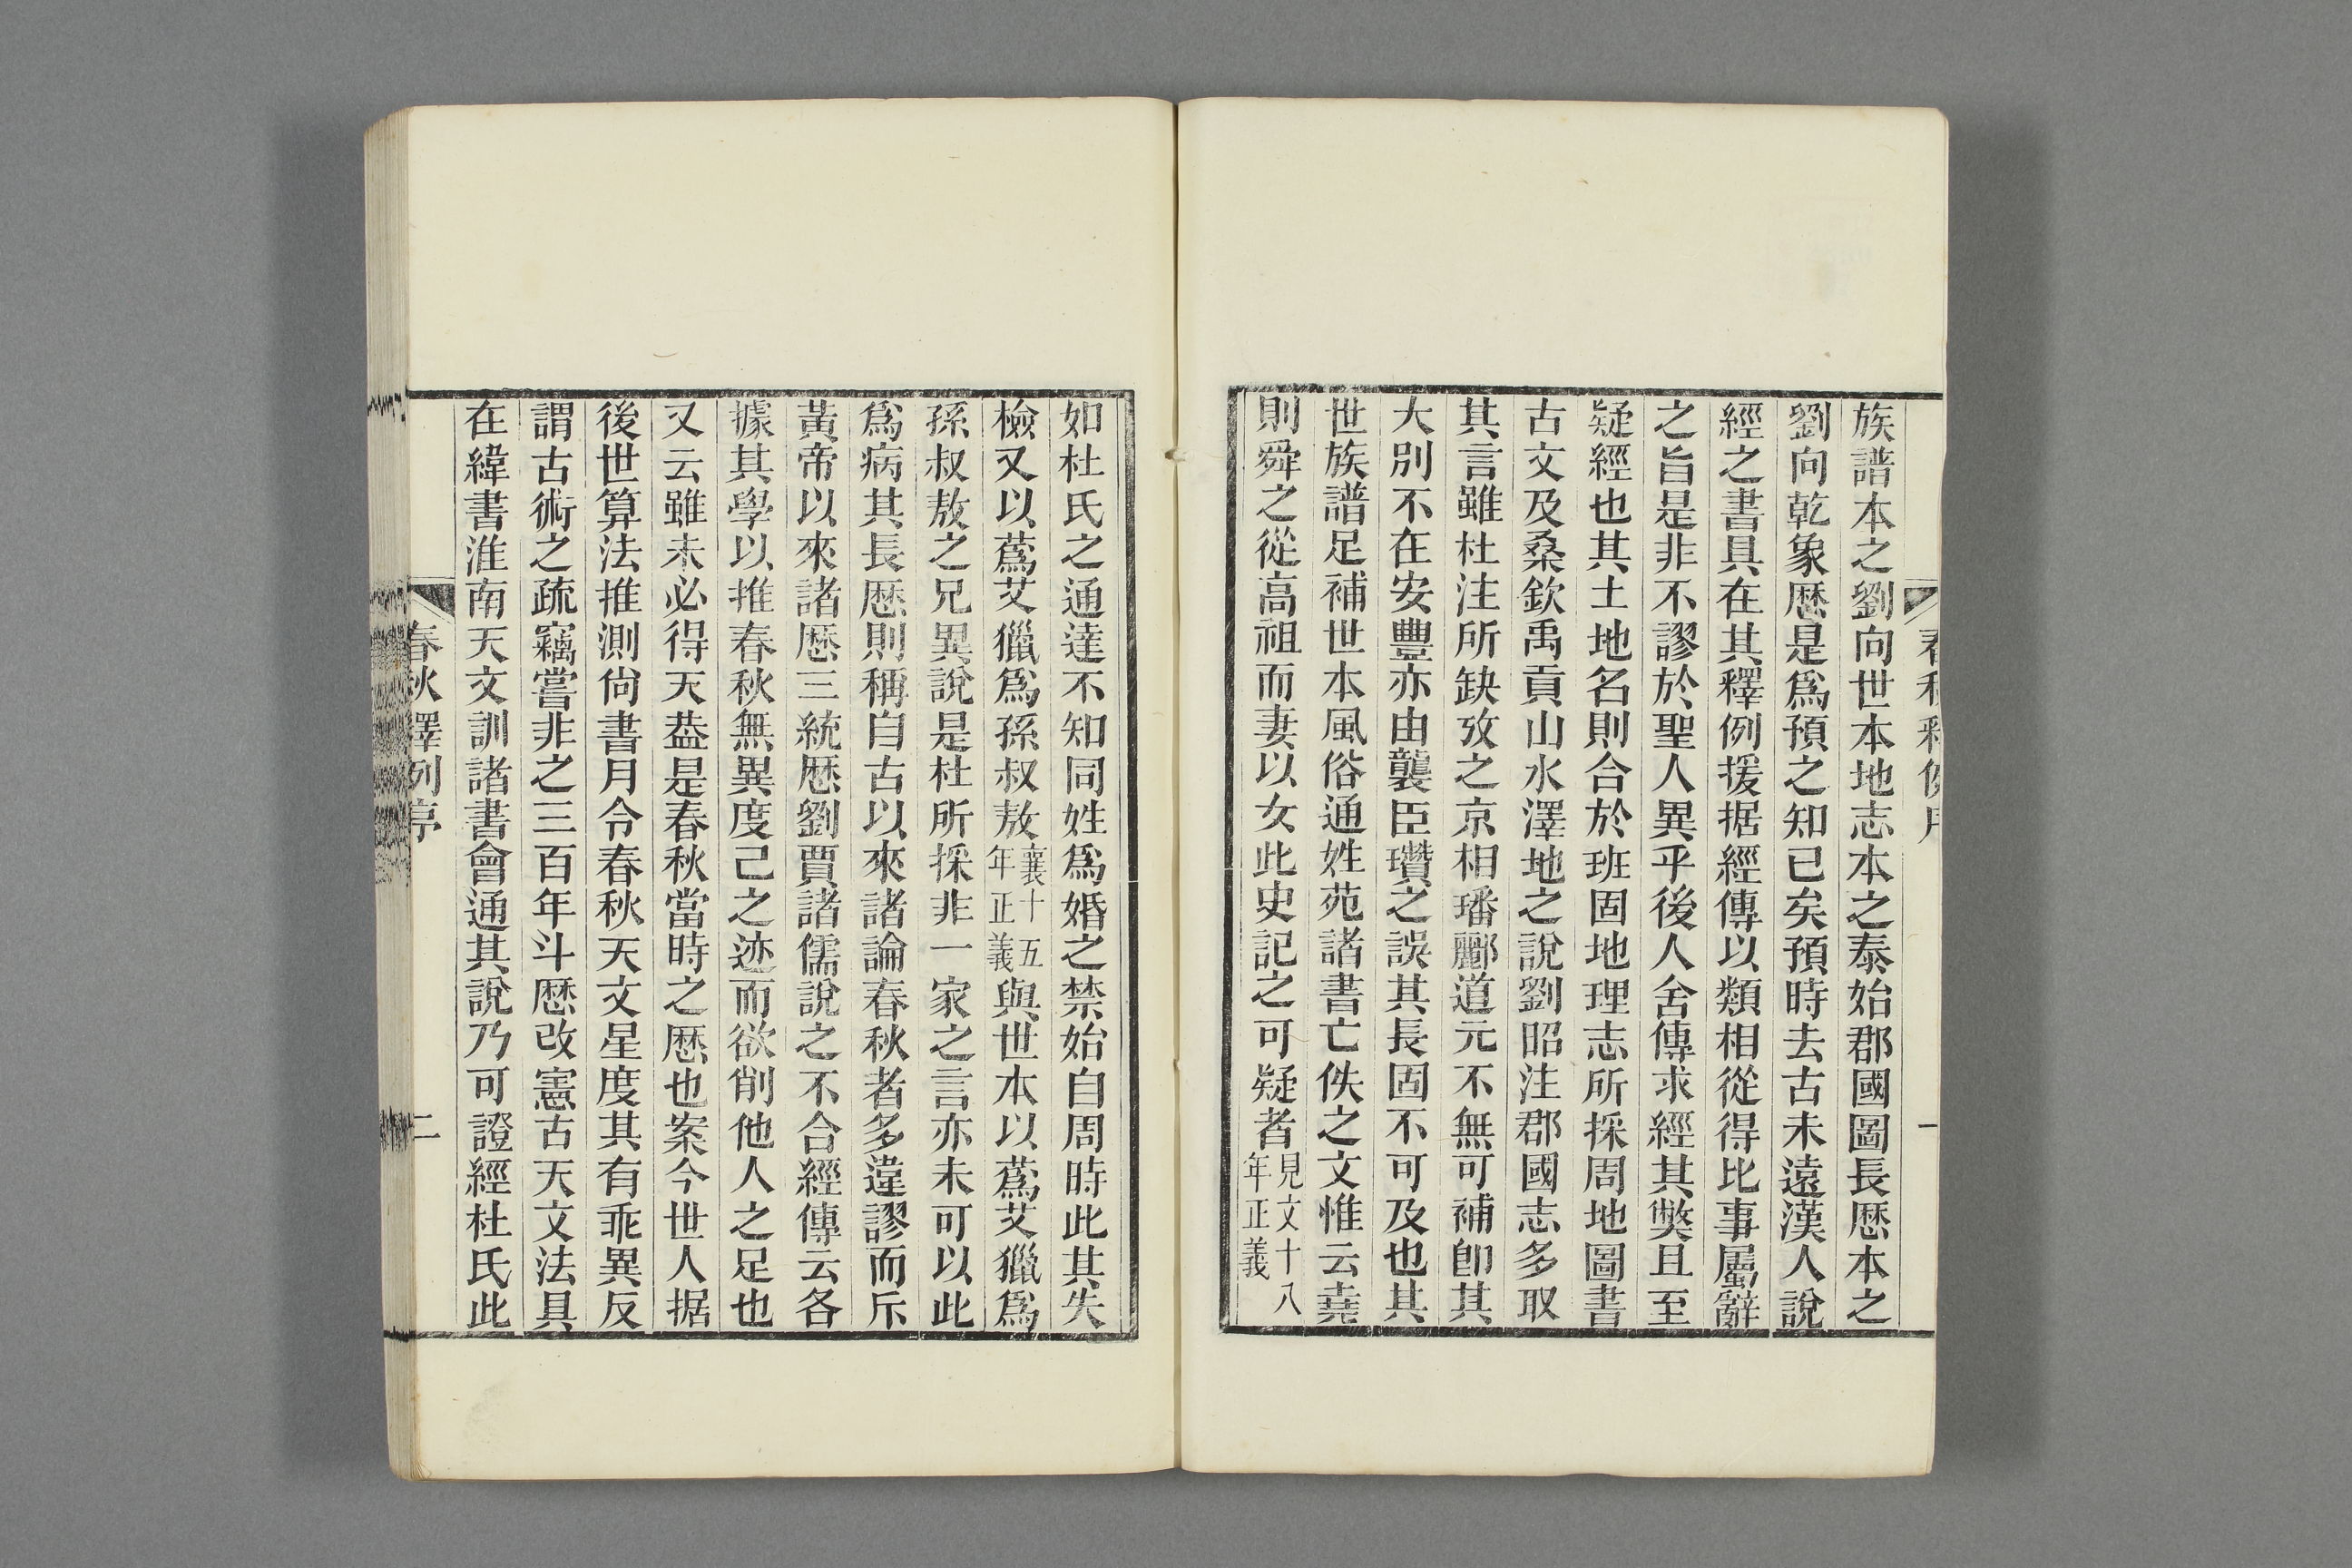 族譜本之劉向世本地志本之泰始郡國圖長厯本之
劉向乾象厯是爲預之知已矣預時去古未遠漢人說
經之書具在其釋例援据經傳以類相從得比事屬辭
之旨是非不謬於聖人異乎後人舍傳求經其獘且至
疑經也其土地名則合於班固地理志所採周地圖書
古文及桑欽禹貢山水澤地之說劉昭注郡國志多取
其言雖杜注所缺攷之京相璠酈道元不無可補卽其
大別不在安豐亦由襲臣瓚之誤其長固不可及也其
世族譜足補世本風俗通姓苑諸書亡佚之文惟云堯
則舜之從高祖而妻以女此史記之可疑者見文十八年正義
如杜氏之通達不知同姓爲婚之禁始自周時此其失
檢又以蔿艾獵爲孫叔敖襄十五年正義與世本以蔿艾獵爲
孫叔敖之兄異說是杜所採非一家之言亦未可以此
爲病其長厯則稱自古以來諸論春秋者多違謬而斥
黃帝以來諸厯三統厯劉賈諸儒說之不合經傳云各
據其學以推春秋無異度己之迹而欲削他人之足也
又云雖未必得天葢是春秋當時之厯也案今世人据
後世算法推測尙書月令春秋天文星度其有乖異反
謂古術之疏竊嘗非之三百年斗厯改憲古天文法具
在緯書淮南天文訓諸書會通其說乃可證經杜氏此
春秋釋例序
二